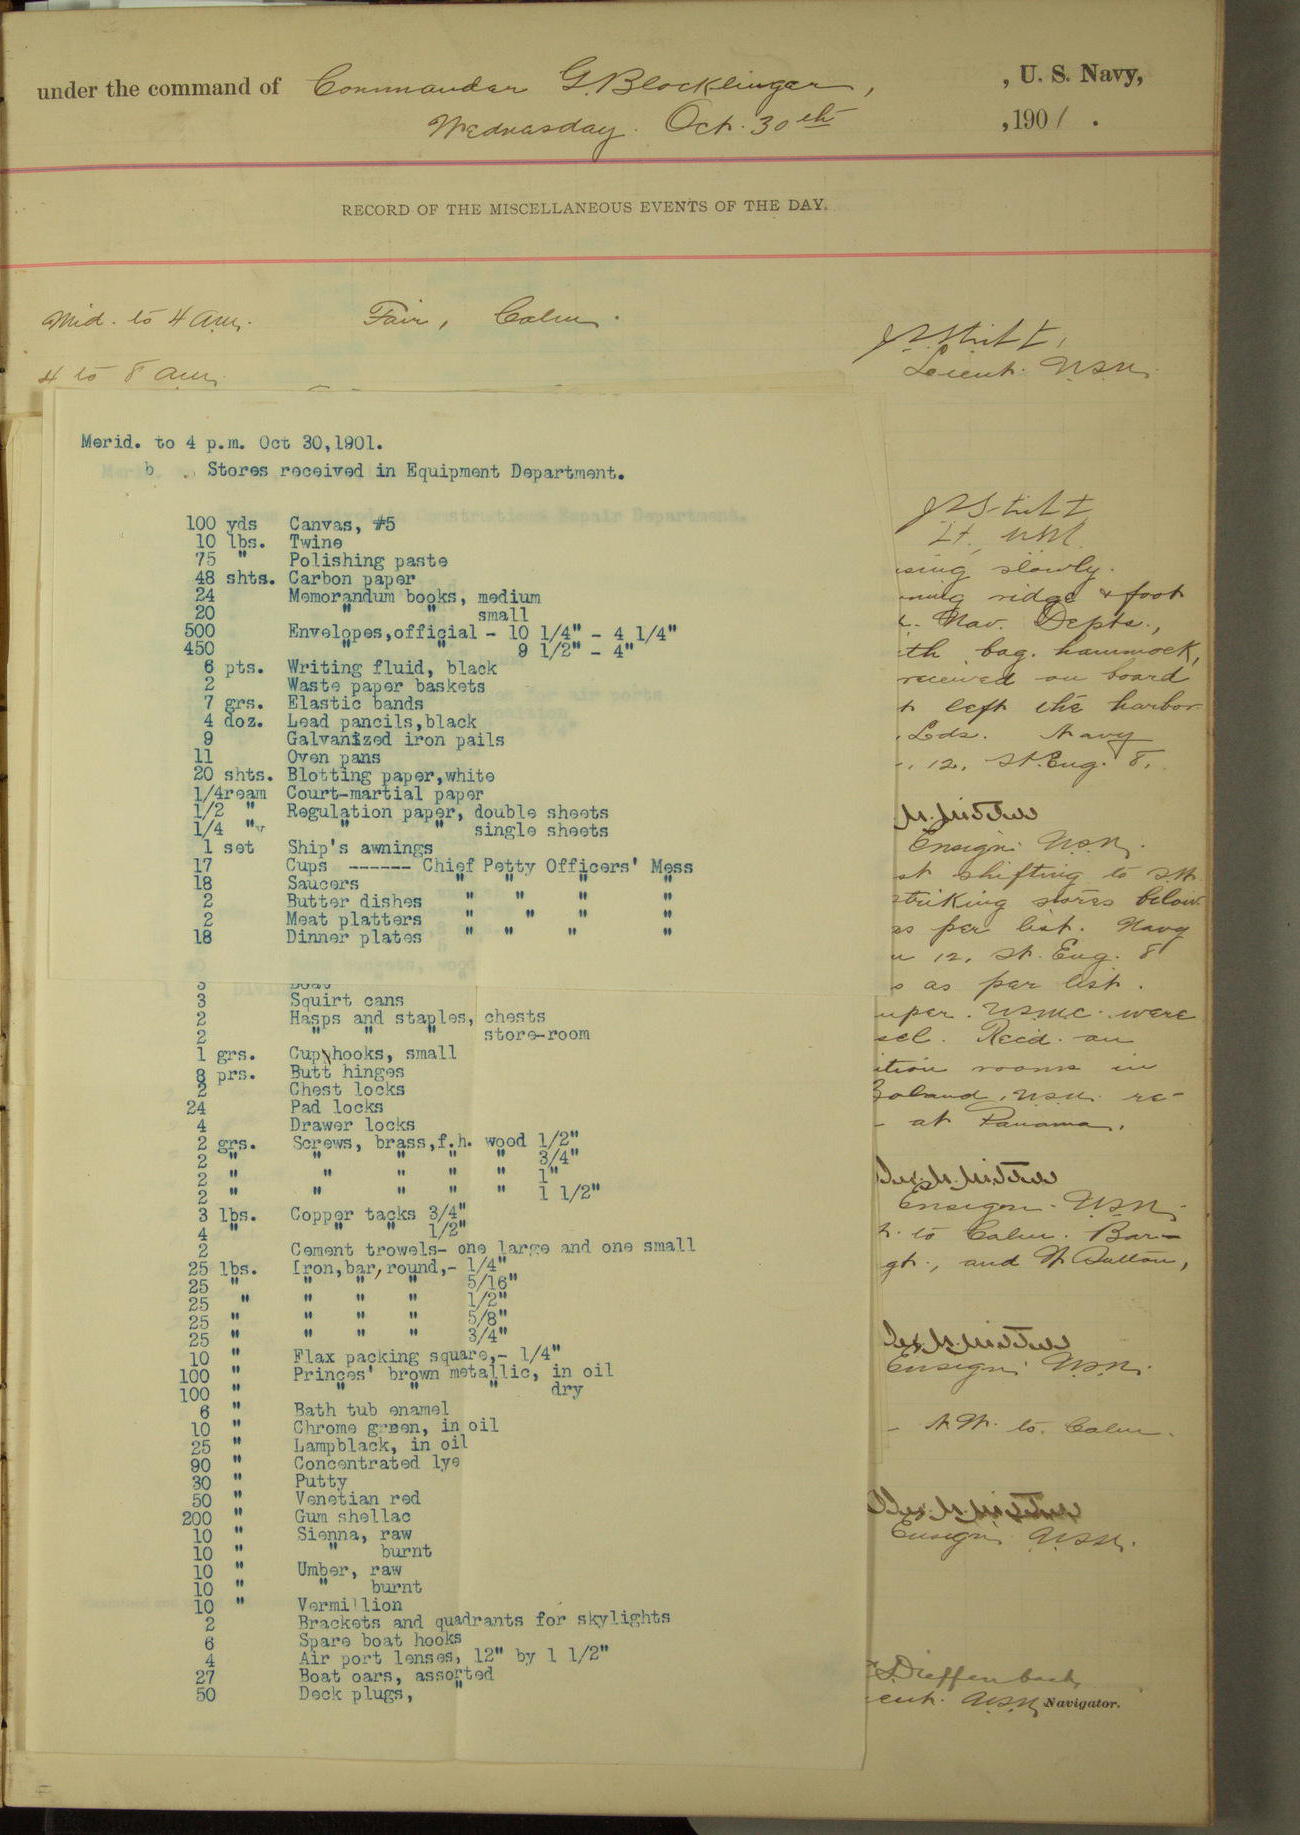 under the command of Commander G. Blocklinger, , U. S. Navy,
Wednesday. Oct. 30th ,1901.
RECORD OF THE MISCELLANEOUS EVENTS OF THE DAY.
Mid. to 4 a.m. Fair, Calm.
Lieut. U.S.N.
4 to 8 a.m.
Merid. to 4 p.m. Oct 30,1901.
b Stores received in Equipment Department.
100 yds Canvas, #5
10 lbs. Twine
75 " Polishing paste
48 shts. Carbon paper
24 Memorandum books, medium
20 " " small
500 Envelopes,official - 10 1/4" - 4 1/4"
450 " " 9 1/2" - 4"
6 pts. Writing fluid, black
2 Waste paper baskets
7 grs. Elastic bands
4 doz. Lead pancils,black
9 Galvanized iron pails
11 Oven pans
20 shts. Blotting paper,white
1/4ream Court-martial paper
1/2 " Regulation paper, double sheets
1/4 " " " single sheets
1 set Ship's awnings
17 Cups ------ Chief Petty Officers' Mess
18 Saucers " " " "
2 Butter dishes " " " "
2 Meat platters " " " "
18 Dinner plates " " " "
3 Squirt cans
2 Hasps and staples, chests
2 " " " store-room
1 grs. Cup hooks, small
8 prs. Butt hinges
2 Chest locks
24 Pad locks
4 Drawer locks
2 grs. Screws, brass,f.h. wood 1/2"
2 " " " " " 3/4"
2 " " " " " 1"
2 " " " " " 1 1/2"
3 lbs. Copper tacks 3/4"
4 " " " 1/2"
2 Cement trowels- one large and one small
25 lbs. Iron,bar,round,- 1/4"
25 " " " " 5/16"
25 " " " " 1/2"
25 " " " " 5/8"
25 " " " " 3/4"
10 " Flax packing square,- 1/4"
100 " Princes' brown metallic, in oil
100 " " " " dry
6 " Bath tub enamel
10 " Chrome green, in oil
25 " Lampblack, in oil
90 " Concentrated lye
30 " Putty
50 " Venetian red
200 " Gum shellac
10 " Sienna, raw
10 " " burnt
10 " Umber, raw
10 " " burnt
10 " Vermillion
2 Brackets and quadrants for skylights
6 Spare boat hooks
4 Air port lenses, 12" by 1 1/2"
27 Boat oars, assorted
50 Deck plugs, "
slowly.
ridge & foot
Nav. Depts.,
bag. hammock,
received on board
left the harbor
Lds. Navy
12. St. Eng. 8.
Ensign U.S.N.
shifting to
striking stores below
as per list. Navy
12. St. Eng. 8
as per list.
U.S.M.C. were
Recd. on
rooms in
U.S.N. re-
at Panama.
Ensign U.S.N.
to Calm. Bar-
and
Ensign U.S.N.
N.W. to Calm.
Ensign U.S.N.
Dieffenbach
U.S.N. Navigator.